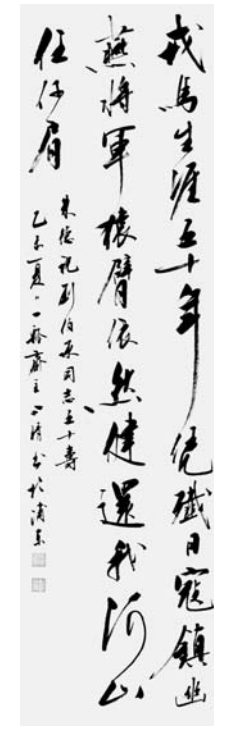 戎馬生涯五十年凭殲日寇鎮幽
燕將軍猿臂依然健還我河山
任仔肩
朱德祝劉伯承同志五十壽
乙未夏一齋主書於浦東